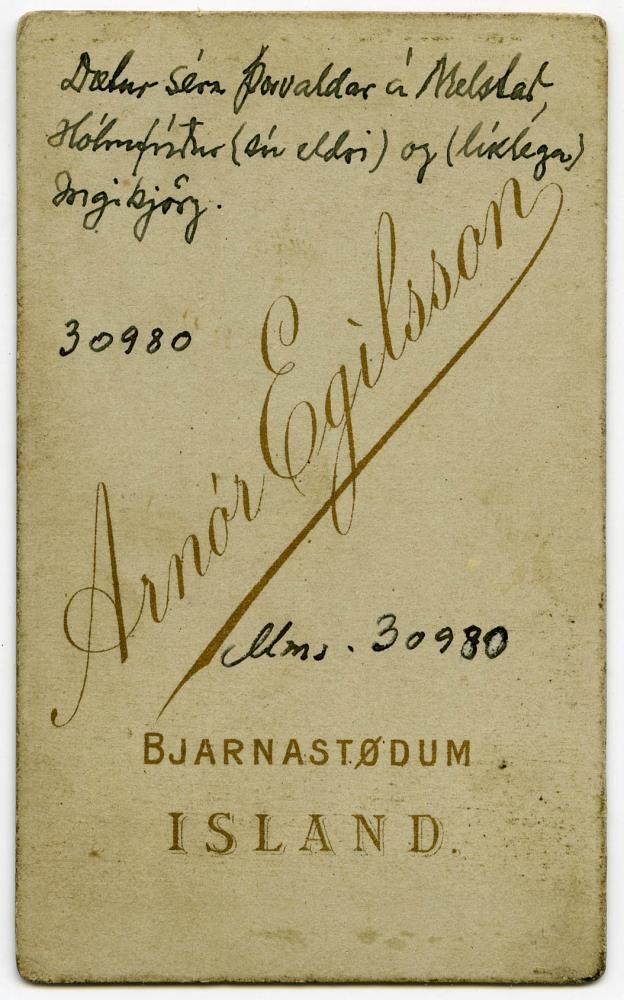 Dætur séra Þorvaldar á Melstað,
Hólmfríður (sú eldri) og (líklega)
Ingibjörg.
30980
Arnór Egilsson
Mms. 30980
BJARNASTØDUM
ISLAND.